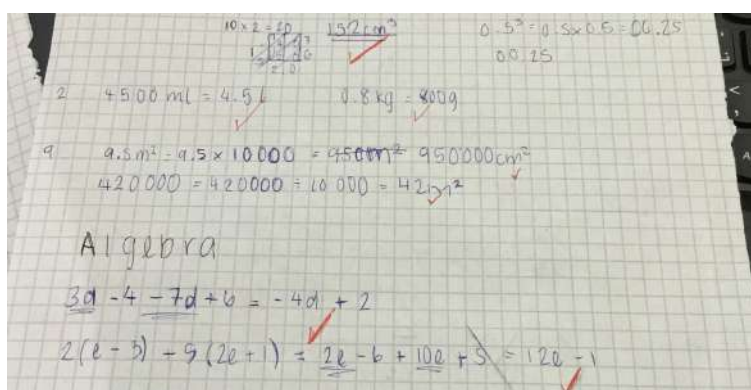 10 × 2 = 20 152cm³ 0.5² = 0.5 × 0.5 = 00.25
00.25
2 4500 ml = 4.5l 0.8 kg = 800g
9 9.5m² = 9.5 × 10000 = 950000cm²
420000 = 420000 ÷ 10 000 = 42m²
Algebra
3d - 4 - 7d + 6 = -4d + 2
2(e - 3) + 5(2e + 1) = 2e - 6 + 10e + 5 = 12e - 1